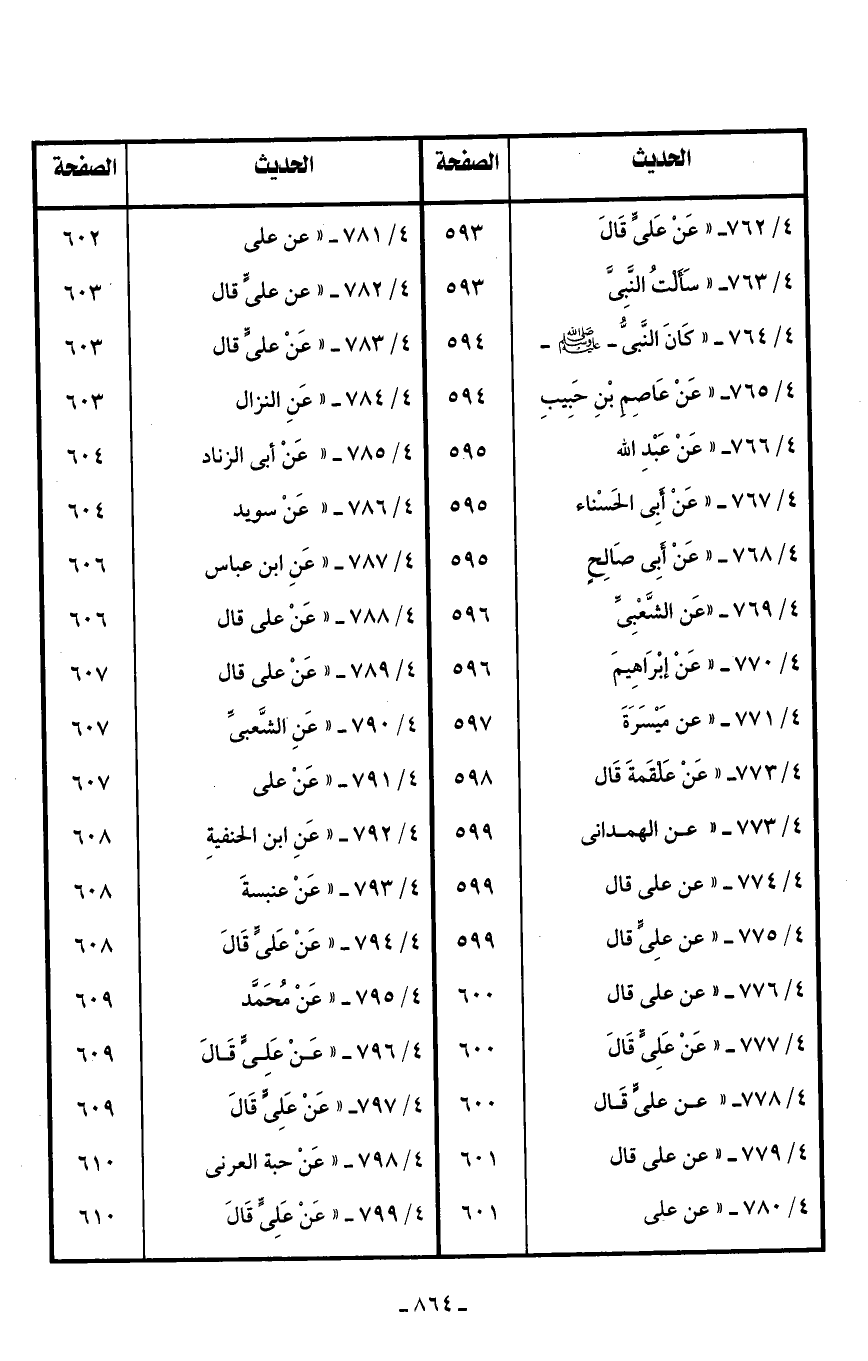 الحديث الصفحة
٤/ ٧٦٢ـ « عَنْ عَلىٍّ قَالَ ٥٩٣
٤/ ٧٦٣ـ « سَأَلْتُ النَّبِىَّ ٥٩٣
٤/ ٧٦٤ ـ « كَانَ النَّبىُّ ـ ﷺ ـ ٥٩٤
٤/ ٧٦٥ـ « عَنْ عَاصِمِ بْنِ حَبِيبِ ٥٩٤
٤/ ٧٦٦ـ « عَنْ عَبْدِ الله ٥٩٥
٤/ ٧٦٧ ـ « عَنْ أَبِى الحَسْناء ٥٩٥
٤/ ٧٦٨ ـ « عَنْ أَبِى صَالِحٍ ٥٩٥
٤/ ٧٦٩ ـ «عَن الشَّعْبِىِّ ٥٩٦
٤/ ٧٧٠ ـ « عَنْ إبْرَاهِيمَ ٥٩٦
٤/ ٧٧١ ـ « عن مَيْسَرَةَ ٥٩٧
٤/ ٧٧٣ـ « عَنْ عَلْقَمةَ قَال ٥٩٨
٤/ ٧٧٣ ـ « عـن الهمـدانى ٥٩٩
٤/ ٧٧٤ ـ « عن على قال ٥٩٩
٤/ ٧٧٥ ـ « عن علِىٍّ قال ٥٩٩
٤/ ٧٧٦ ـ « عن على قال ٦٠٠
٤/ ٧٧٧ ـ « عَنْ عَلِىٍّ قَالَ ٦٠٠
٤/ ٧٧٨ـ « عـن علىٍّ قَـال ٦٠٠
٤/ ٧٧٩ ـ « عن على قال ٦٠١
٤/ ٧٨٠ ـ « عن على ٦٠١
الحديث الصفحة
٤/ ٧٨١ ـ « عن على ٦٠٢
٤/ ٧٨٢ ـ « عن علىٍّ قال ٦٠٣
٤/ ٧٨٣ ـ « عَنْ علىٍّ قال ٦٠٣
٤/ ٧٨٤ ـ « عَنِ النزال ٦٠٣
٤/ ٧٨٥ ـ « عَنْ أبى الزناد ٦٠٤
٤/ ٧٨٦ ـ « عَنْ سويد ٦٠٤
٤/ ٧٨٧ ـ « عَنِ ابن عباس ٦٠٦
٤/ ٧٨٨ ـ « عَنْ على قال ٦٠٦
٤/ ٧٨٩ ـ « عَنْ على قال ٦٠٧
٤/ ٧٩٠ ـ « عَنِ الشَّعبىِّ ٦٠٧
٤/ ٧٩١ ـ « عَنْ على ٦٠٧
٤/ ٧٩٢ ـ « عَنِ ابن الحنفيةِ ٦٠٨
٤/ ٧٩٣ ـ « عَنْ عنبسةَ ٦٠٨
٤/ ٧٩٤ ـ « عَنْ عَلىٍّ قَالَ ٦٠٨
٤/ ٧٩٥ ـ « عَنْ مُحَمَّد ٦٠٩
٤/ ٧٩٦ ـ « عَـنْ عَلِـىٍّ قَـالَ ٦٠٩
٤/ ٧٩٧ـ « عَنْ عَلِىٍّ قَالَ ٦٠٩
٤/ ٧٩٨ ـ « عَنْ حبة العرنى ٦١٠
٤/ ٧٩٩ ـ « عَنْ عَلِىٍّ قَالَ ٦١٠
ـ ٨٦٤ ـ